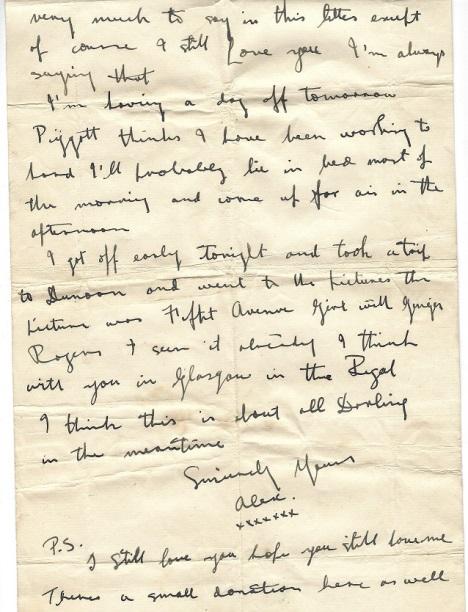 very much to say in this letter except
of course I still Love you I'm always
saying that
I'm having a day off tomorrow
Piggott thinks I have been working to
hard I'll probably lie in bed most of
the morning and come up for air in the
afternoon
I got off early tonight and took a trip
to Dunoon and went to the pictures the
picture was Fifth Avenue Girl with Ginger
Rogers I seen it already I think
with you in Glasgow in the Regal
I think this is about all Darling
in the meantime
Sincerely Yours
Alex.
xxxxxxx
P.S.
I still love you hope you still love me
Theres a small donation here as well